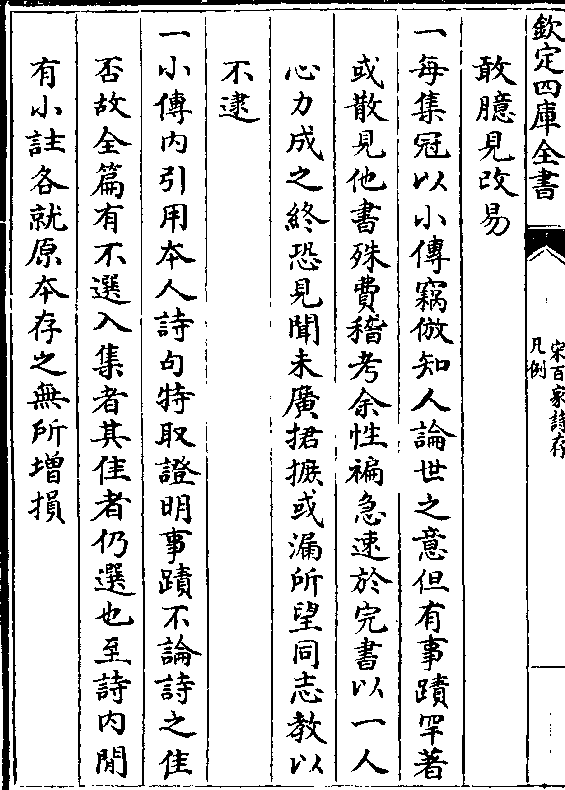 欽定四庫全書
宋百家詩存
凡例
敢臆見改易
一每集冠以小傳竊倣知人論世之意但有事蹟罕著
或散見他書殊費稽考余性褊急速於完書以一人
心力成之終恐見聞未廣捃摭或漏所望同志教以
不逮
一小傳內引用本人詩句特取證明事蹟不論詩之佳
否故全篇有不選入集者其佳者仍選也至詩內閒
有小註各就原本存之無所增損